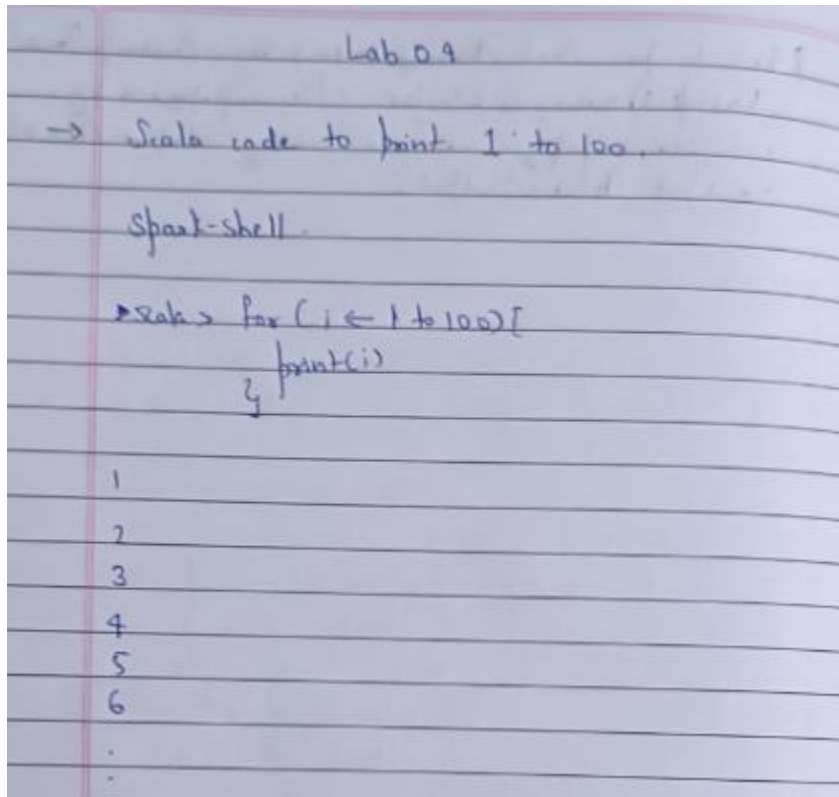 Lab 09
→ Scala code to print 1 to 100.
Spark-shell.
scala > for (i ← 1 to 100) {
print(i)
}
1
2
3
4
5
6
.
.